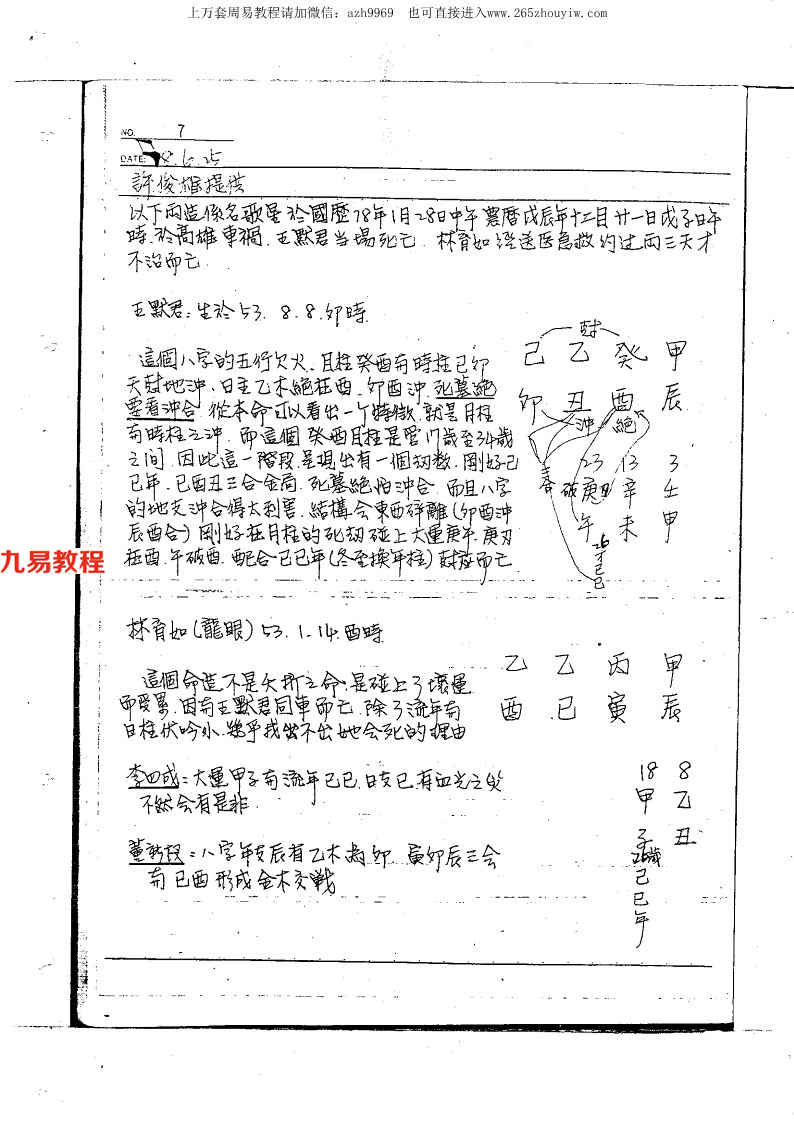 上万套周易教程请加微信：azh9969 也可直接进入www.265zhouyiw.com
NO. 7
DATE: 78.6.25
許俊雄提供
以下兩造係名歌星於國曆78年1月28日中午農曆戊辰年十二月廿一日戊子日午
時.於高雄車禍.王默君当場死亡.林育如經送医急救約过兩三天才
不治而亡.
王默君:生於53. 8. 8. 卯時.
這個八字的五行欠火.月柱癸酉與時柱己卯
天尅地沖.日主乙木絕在酉.卯酉沖.死墓絕
要看沖合.從本命可以看出一个特徵.就是月柱
與時柱之沖.而這個癸酉月柱是管17歲至34歲
之間.因此這一階段呈現出有一個劫数.剛好己
巳年.巳酉丑三合金局.死墓絕怕沖合.而且八字
的地支沖合得太利害.結構会東西碎離(卯酉沖
辰酉合)剛好在月柱的死劫碰上大運庚午.庚刃
在酉.午破酉.配合己巳年(冬至換年柱)尅應而亡
尅
己 乙 癸 甲
卯 丑 酉 辰
沖 絕
23 13 3
破庚 辛 壬
午 未 申
26才己巳
九易教程
林育如(龍眼)53.1.14.酉時
這個命造不是夭折之命.是碰上了壞運
而受累.因與王默君同車而亡.除了流年與
日柱伏吟外.幾乎找出不出她会死的理由
乙 乙 丙 甲
酉 巳 寅 辰
李四成:大運甲子與流年己巳.日支巳.有血光之災
不然会有是非.
18 8
甲 乙
子 丑
26歲
己
巳
年
董新段:八字年支辰有乙木為卯.寅卯辰三会
與巳酉形成金木交戰